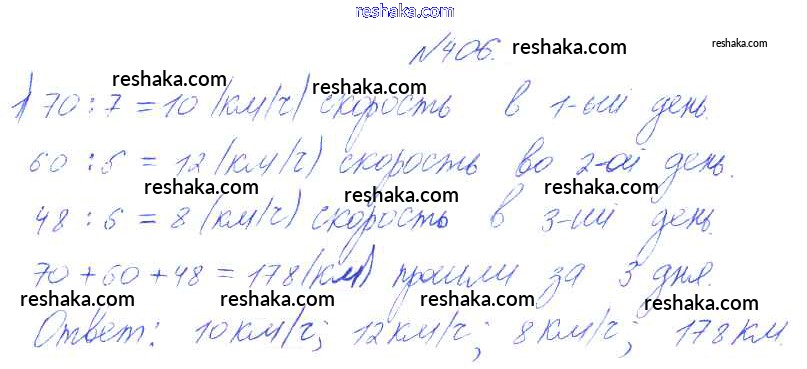 reshaka.com
№406. reshaka.com reshaka.com
reshaka.com reshaka.com
1) 70 : 7 = 10 (км/ч) скорость в 1-ый день.
reshaka.com reshaka.com
60 : 5 = 12 (км/ч) скорость во 2-ой день.
reshaka.com reshaka.com
48 : 6 = 8 (км/ч) скорость в 3-ий день.
70 + 60 + 48 = 178 (км) прошли за 3 дня.
reshaka.com reshaka.com reshaka.com reshaka.com
Ответ: 10 км/ч; 12 км/ч; 8 км/ч; 178 км.
reshaka.com